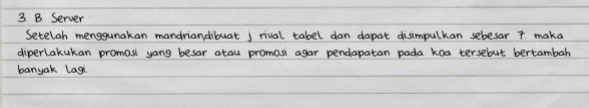 3. B. Server
Setelah menggunakan mandrian,dibuat j rival tabel dan dapat disimpulkan sebesar 7. maka
diperlakukan promosi yang besar atau promosi agar pendapatan pada koa tersebut bertambah
banyak lagi.